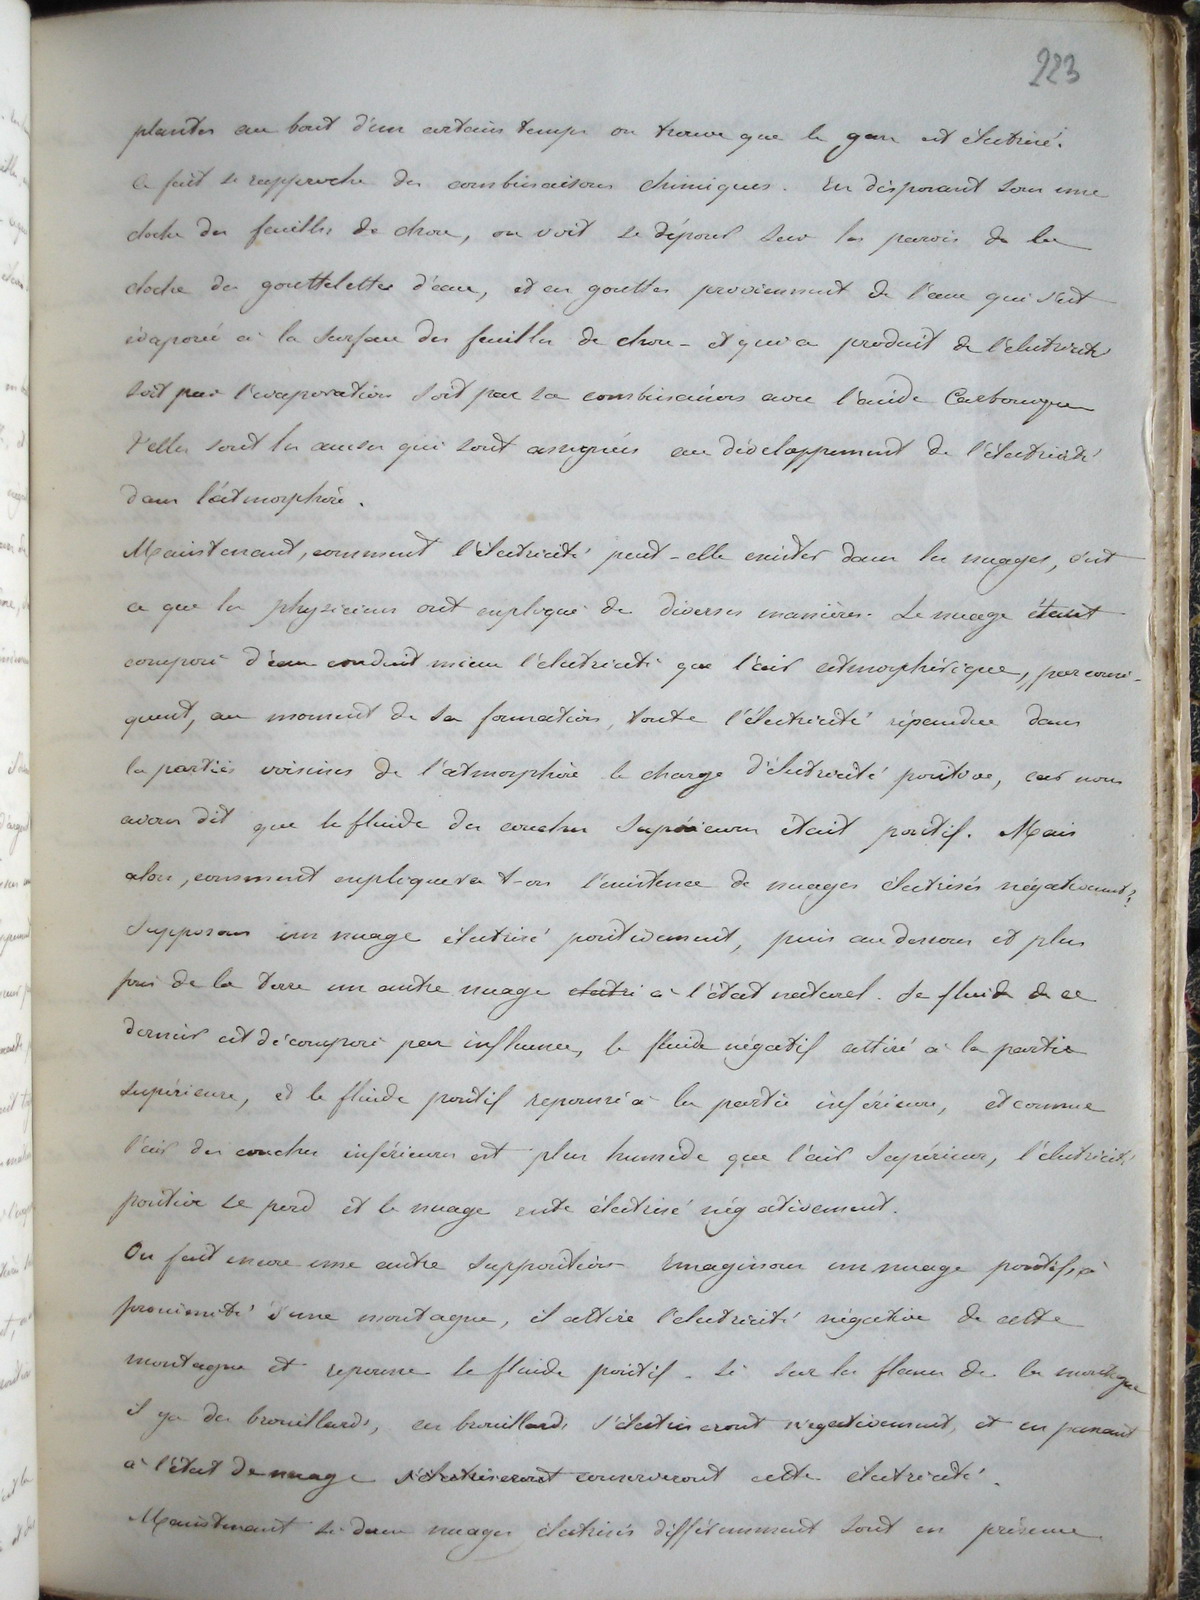 223
plantes au bout d'un certain temps on trouve que le gaz est électrisé.
Ce fait se rapproche des combinaisons chimiques. En disposant sous une
cloche des feuilles de chou, on voit se déposer sur les parois de la
cloche des gouttelettes d'eau, et ces gouttes proviennent de l'eau qui s'est
évaporée à la surface des feuilles de chou - et qui a produit de l'électricité
soit par l'évaporation soit par sa combinaison avec l'acide Carbonique
Telles sont les causes qui sont assignées au développement de l'électricité
dans l'atmosphère.
Maintenant, comment l'électricité peut-elle exister dans les nuages, c'est
ce que les physiciens ont expliqué de diverses manières. Le nuage étant
composé d'eau conduit mieux l'électricité que l'air atmosphérique, par consé-
quent, au moment de sa formation, toute l'électricité répandue dans
les parties voisines de l'atmosphère le charge d'électricité positive, car nous
avons dit que le fluide des couches supérieures était positif. Mais
alors, comment expliquera t-on l'existence de nuages électrisés négativement?
Supposons un nuage électrisé positivement, puis au dessous et plus
près de la terre un autre nuage électri à l'état naturel. Le fluide de ce
dernier est décomposé par influence, le fluide négatif attiré à la partie
supérieure, et le fluide positif repoussé à la partie inférieure, et comme
l'air des couches inférieures est plus humide que l'air supérieur, l'électricité
positive se perd et le nuage reste électrisé négativement.
On fait encore une autre supposition Imaginons un nuage positif, à
proximité d'une montagne, il attire l'électricité négative de cette
montagne et repousse le fluide positif. Si sur les flancs de la montagne
il y a des brouillards, ces brouillards s'électriseront négativement, et en passant
à l'état de nuage s'électriseront conserveront cette électricité.
Maintenant si deux nuages électrisés différemment sont en présence